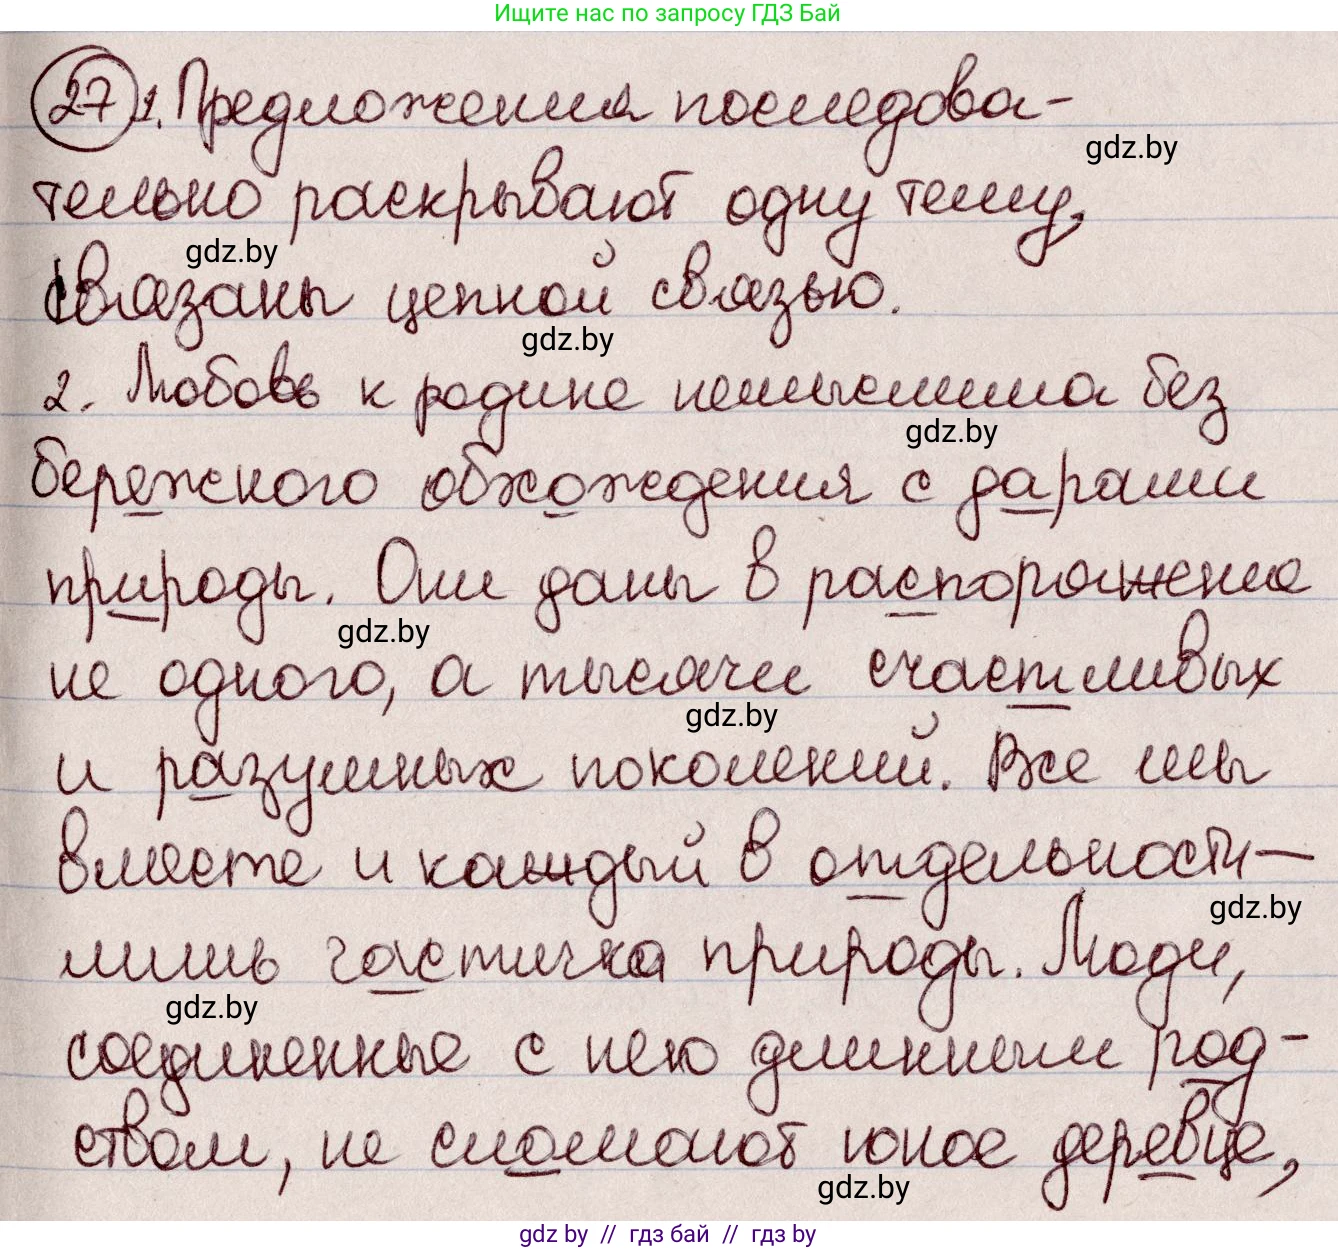 Ищите нас по запросу ГДЗ Бай
27 1. Предложения последова-
gdz.by
тельно раскрывают одну тему,
gdz.by
связаны цепной связью.
gdz.by
2. Любовь к родине немыслима без
gdz.by
бережного обхождения с дарами
природы. Они даны в распоряжение
gdz.by
не одного, а тысячи счастливых
gdz.by
и разумных поколений. Все мы
вместе и каждый в отдельности —
gdz.by
лишь частичка природы. Люди,
gdz.by
соединенные с нею длинным род-
ством, не сломают юное деревце,
gdz.by
gdz by // гдз бай // гдз by